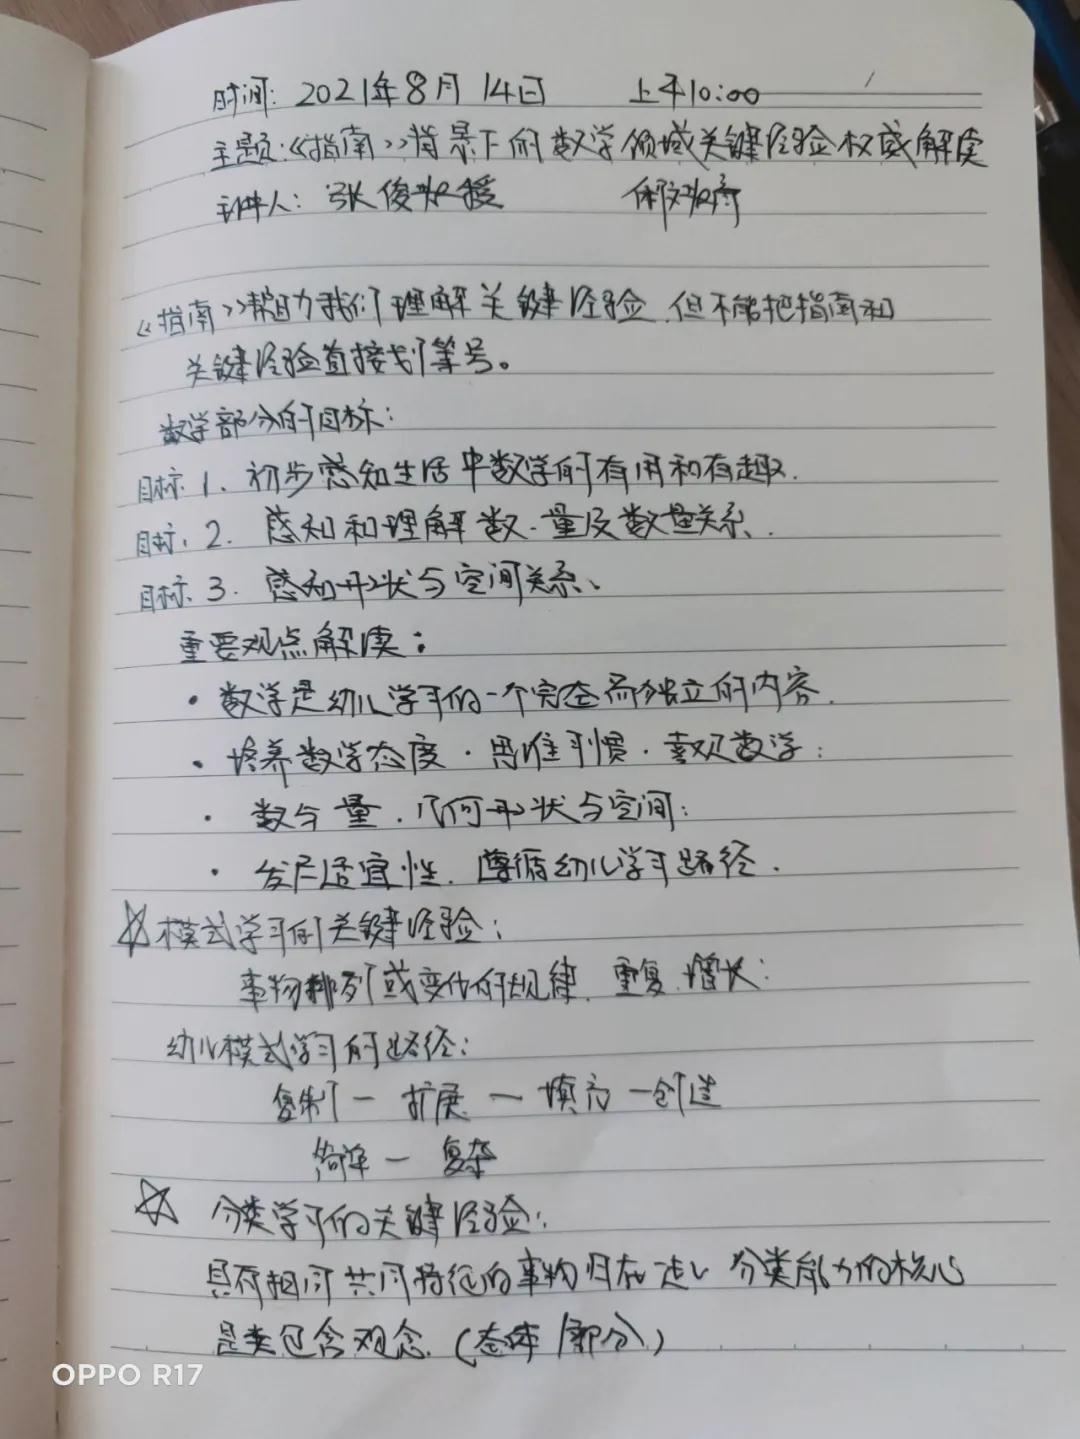 时间: 2021年8月14日 上午10:00
主题:《指南》背景下的数学领域关键经验权威解读
主讲人: 张俊教授
《指南》帮助我们理解关键经验.但不能把指南和
关键经验直接划等号。
数学部分的目标:
目标.1.初步感知生活中数学的有用和有趣.
目标.2.感知和理解数.量及数量关系.
目标.3.感知形状与空间关系、
重要观点解读:
·数学是幼儿学习的一个完整而独立的内容.
·培养数学态度.思维习惯.喜欢数学;
·数与量.几何形状与空间;
·发展适宜性.遵循幼儿学习路径.
☆模式学习的关键经验;
事物排列或变化的规律.重复.增长;
幼儿模式学习的路径;
复制—扩展—填充—创造
简单—复杂
☆分类学习的关键经验;
具有相同共同特征的事物归在一起 分类能力的核心
是类包含观念.(整体/部分)
OPPO R17